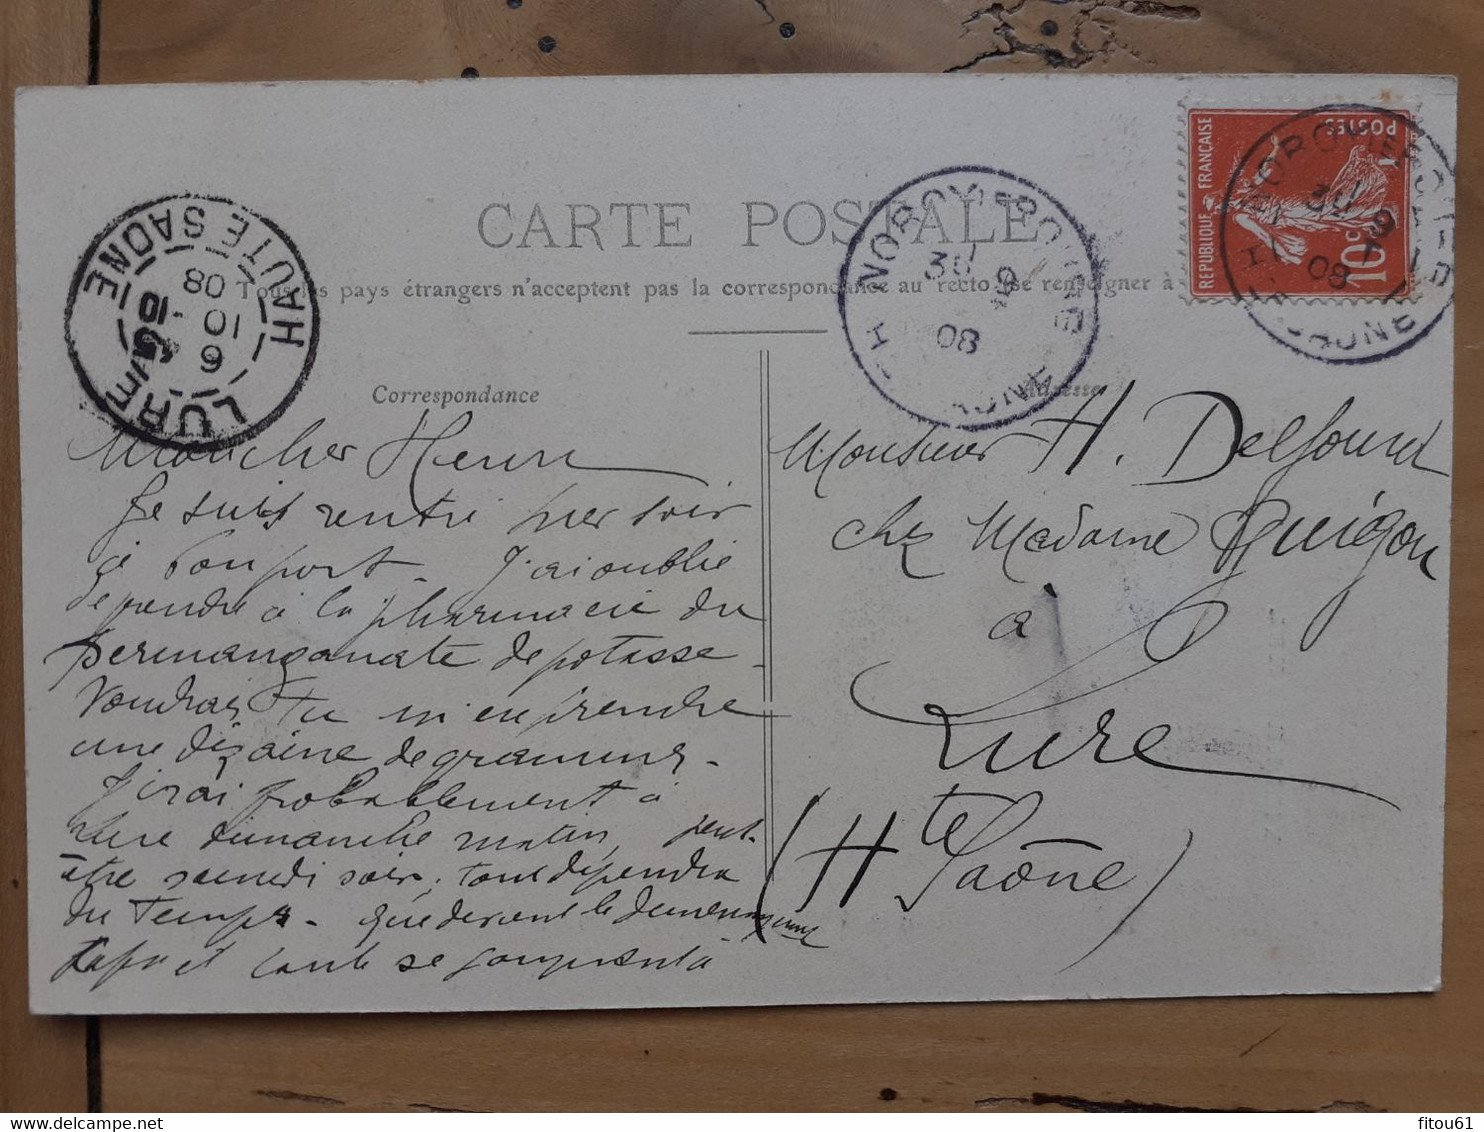 CARTE POSTALE
Tous les pays étrangers n'acceptent pas la correspondance au recto (se renseigner à
Correspondance
Adresse
LURE
HAUTE SAÔNE
6
10
08
NOROY-LE-BOURG
30
9
08
HTE SAONE
REPUBLIQUE FRANÇAISE
POSTES
10c
Mon cher Henri
Je suis rentré hier soir
à
J'ai oublié
de prendre à la pharmacie du
permanganate de potasse.
Voudrais tu m'en prendre
une dizaine de grammes.
J'irai probablement à
Lure dimanche matin, peut-
être samedi soir, tout dépendra
du temps. Que devient le
Papa et
Monsieur H. Delsourd
chez Madame Guigon
à
Lure
(Hte Saône)
fitou61